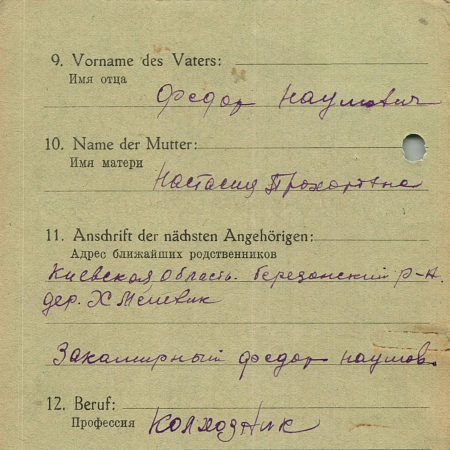 9. Vorname des Vaters:
Имя отца
Федор Наумович
10. Name der Mutter:
Имя матери
Настасия Прохоровна
11. Anschrift der nächsten Angehörigen:
Адрес ближайших родственников
Киевская область. Березанский р-н.
дер. Хмелевик
Федор Наумов.
12. Beruf:
Профессия
Колхозник